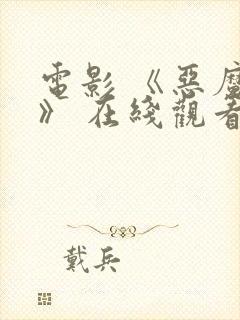 電影 《惡魔
》 在綫觀看
戴兵